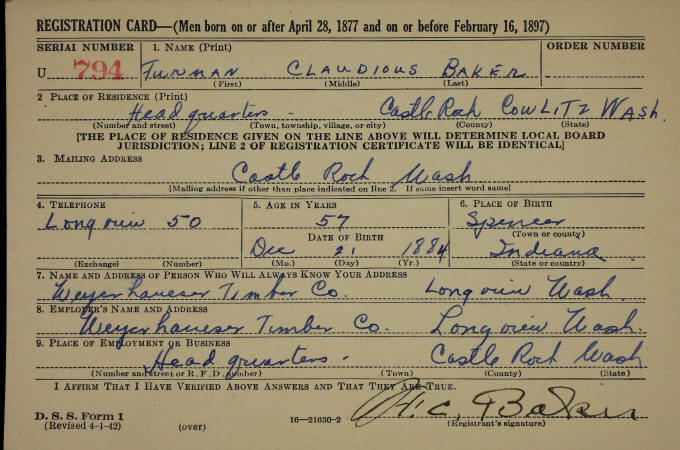 REGISTRATION CARD—(Men born on or after April 28, 1877 and on or before February 16, 1897)
SERIAL NUMBER 1. NAME (Print) ORDER NUMBER
U 794 FURMAN CLAUDIOUS BAKER
(First) (Middle) (Last)
2 PLACE OF RESIDENCE (Print)
Headquarters - Castle Rock COWLITZ WASH.
(Number and street) (Town, township, village, or city) (County) (State)
[THE PLACE OF RESIDENCE GIVEN ON THE LINE ABOVE WILL DETERMINE LOCAL BOARD
JURISDICTION; LINE 2 OF REGISTRATION CERTIFICATE WILL BE IDENTICAL]
3. MAILING ADDRESS
Castle Rock Wash
[Mailing address if other than place indicated on line 2. If same insert word same]
4. TELEPHONE 5. AGE IN YEARS 6. PLACE OF BIRTH
Longview 50 57 Spencer
DATE OF BIRTH (Town or county)
Dec 21 1884 Indiana
(Exchange) (Number) (Mo.) (Day) (Yr.) (State or country)
7. NAME AND ADDRESS OF PERSON WHO WILL ALWAYS KNOW YOUR ADDRESS
Weyerhaueser Timber Co. Longview Wash.
8. EMPLOYER'S NAME AND ADDRESS
Weyerhaueser Timber Co. Longview Wash.
9. PLACE OF EMPLOYMENT OR BUSINESS
Headquarters - Castle Rock Wash
(Number and street or R. F. D. number) (Town) (County) (State)
I AFFIRM THAT I HAVE VERIFIED ABOVE ANSWERS AND THAT THEY ARE TRUE.
C. Baker
D. S. S. Form 1
(Revised 4-1-42) (over) 16—21630-2 (Registrant's signature)